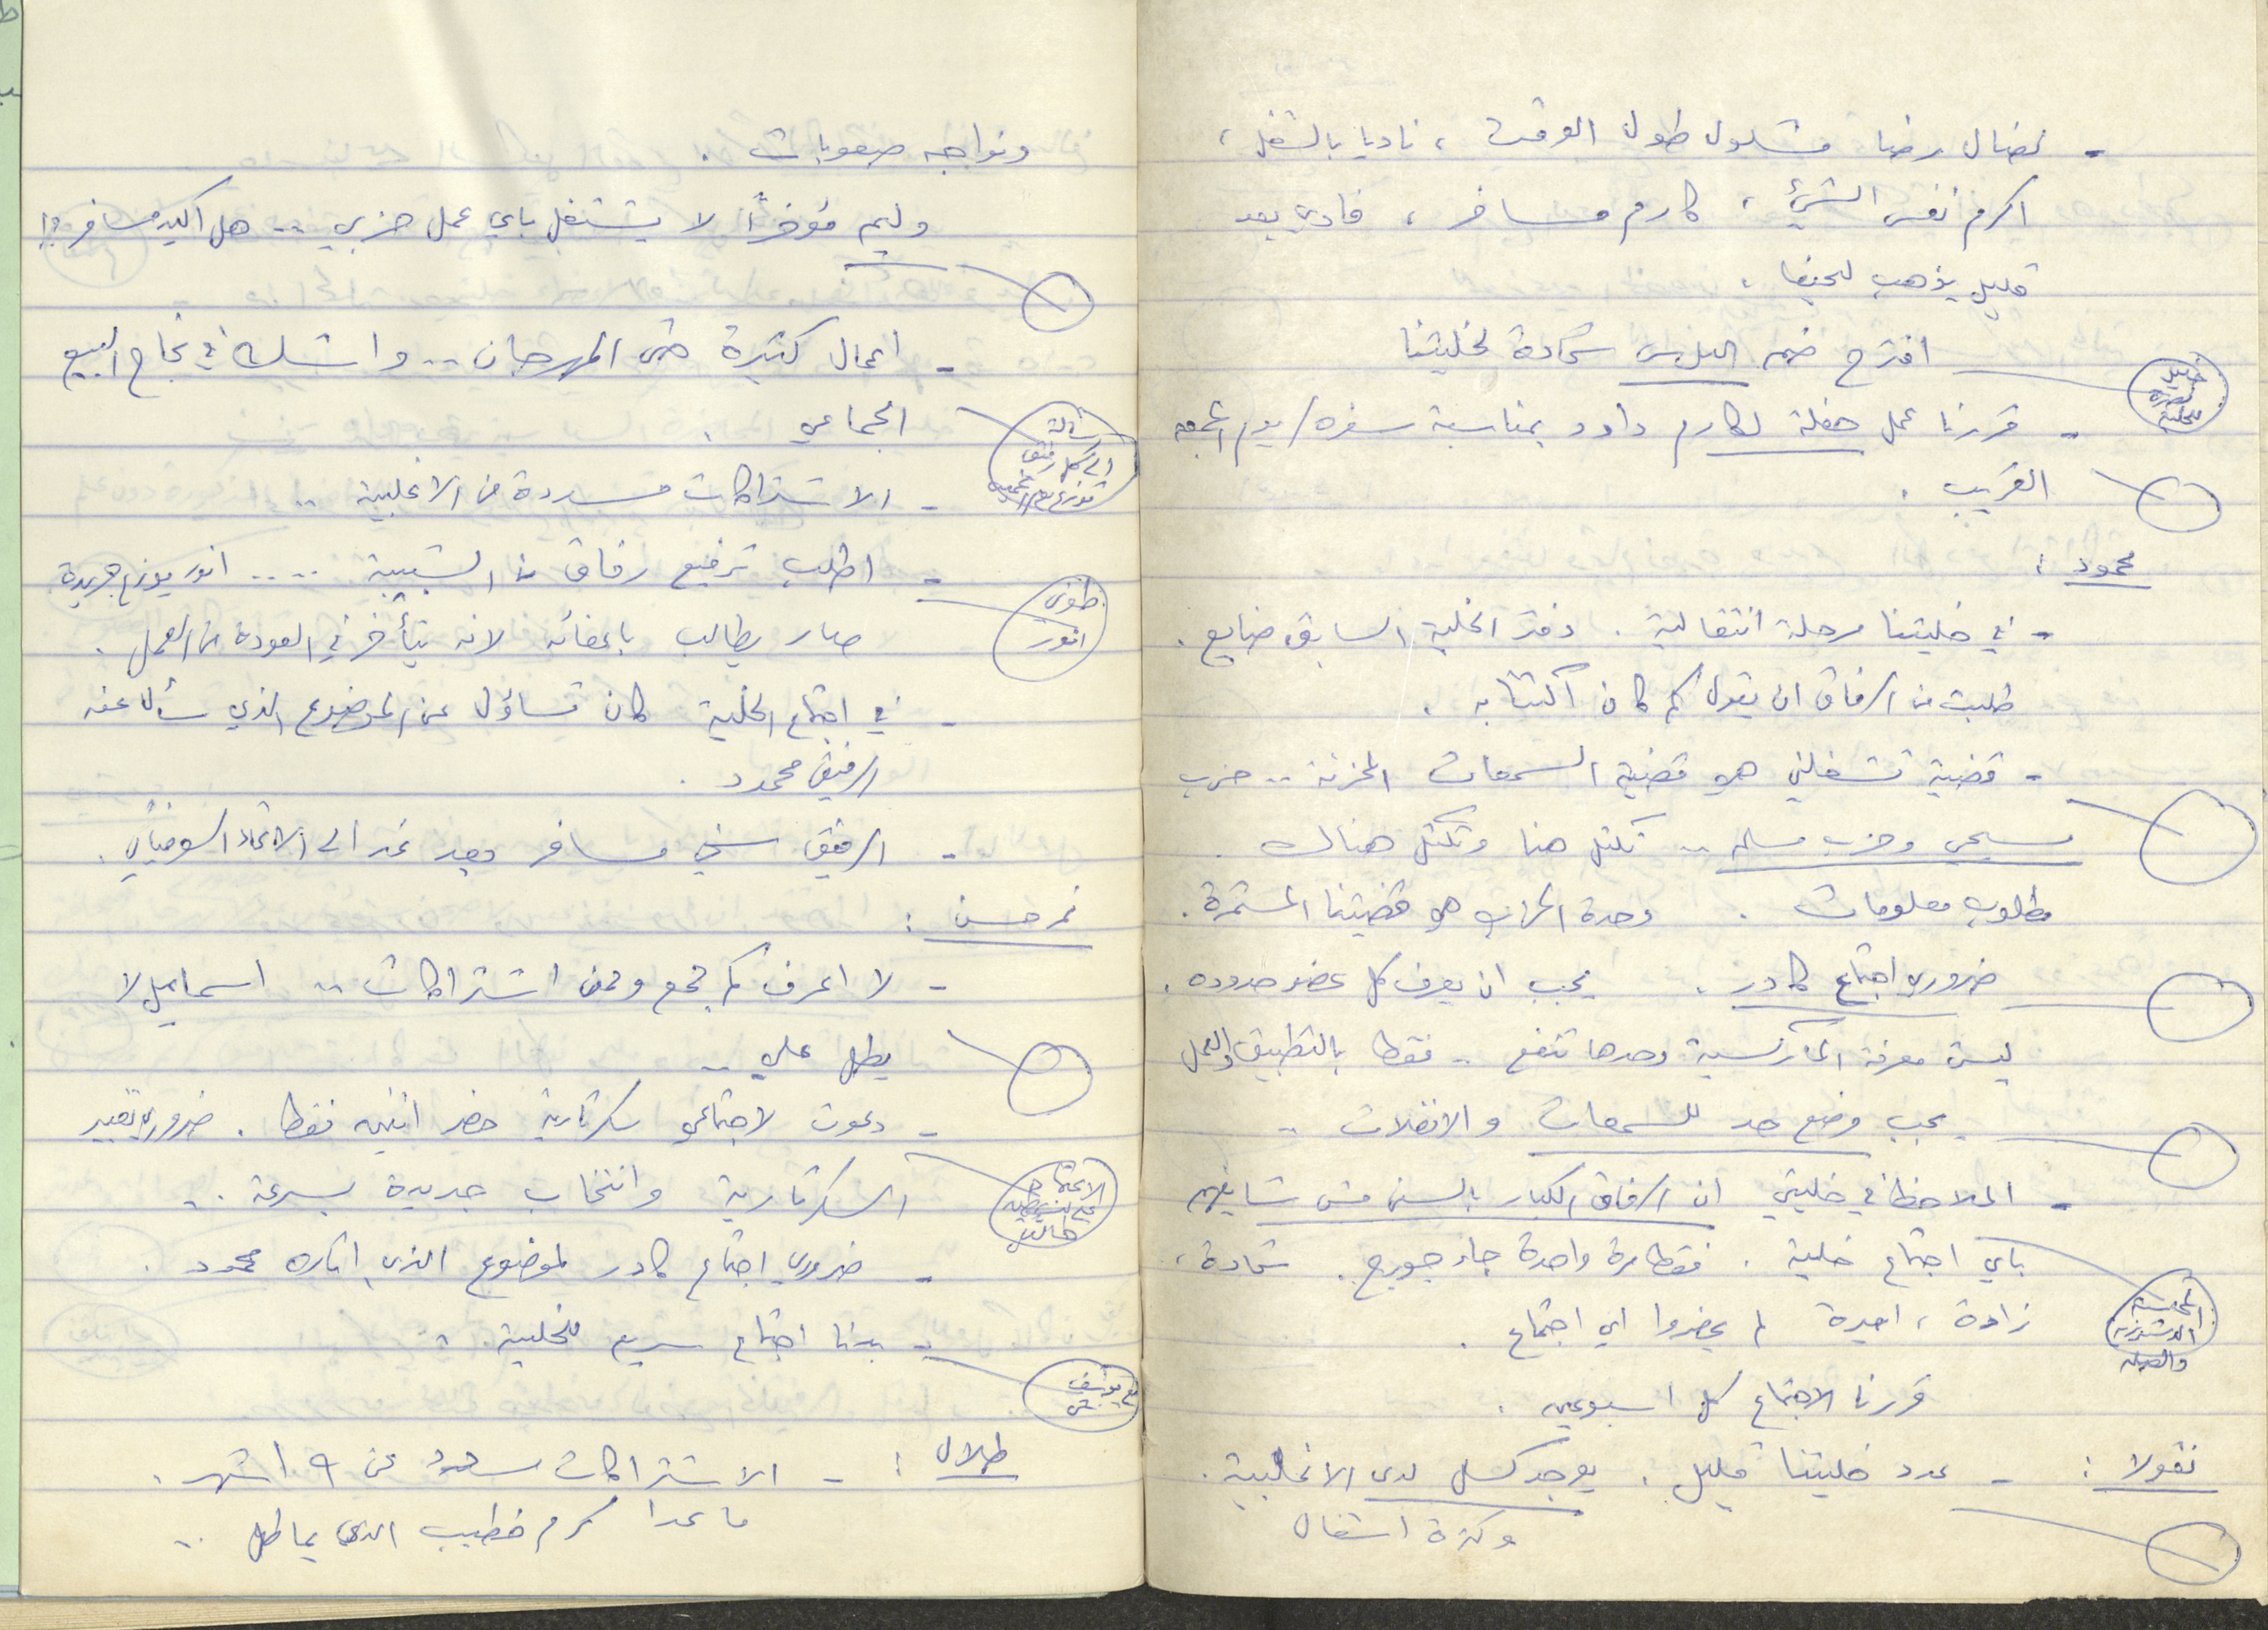 - نضال رضا مشلول طول الوقت ، ناديا بالشغل ،
اكرم نفس الشيء ، كارم مسافر ، فادي بعد
قليل يذهب لحيفا .
اقترح ضم الياس شحادة لخليتنا
- قررنا عمل حفلة لكارم داود بمناسبة سفره / يوم الجمعه
القريب .
محمود :
- في خليتنا مرحلة انتقالية . دفتر الخلية السابق ضايع .
طلبت من الرفاق ان يقول كم كان اكتتابه .
- قضية تشغلني هو قضية السمعات المخزنة .. حزب
مسيحي وحزب مسلم .. تكتل هنا وتكتل هناك .
مطلوب معلومات . وحدة الحزب هي قضيتنا المستمرة .
ضروري اجتماع كادر . يجب ان يعرف كل عضو حدوده .
ليست معرفة الماركسية وحدها تنفع .. فقط بالتطبيق والعمل
يجب وضع حد للسمعات والانفلات ..
- الملاحظ في خليتي ان الرفاق الكبار بالسن مش شايفهم
باي اجتماع خلية . فقط مرة واحدة جاء جورج . شحادة ،
زادة ، اميرة لم يحضروا اي اجتماع .
قررنا الاجتماع كل اسبوعين .
نقولا : - عدد خليتنا قليل . يوجد كسل لدى الاغلبية .
وكثرة اشغال
ونواجه صعوبات .
وليم مؤخراً لا يشتغل باي عمل حزبي .. هل اكيد مسافر ؟!
- اعمال كثيرة حتى المهرجان .. واشك في نجاح البيع
الجماعي .
رسالة الى كل رفيق
- الاشتراكات مسددة من الاغلبية ..
- اطلب ترفيع رفاق من الشبيبة .... انور يوزع جريدة
انور
صار يطالب باعفائه لانه يتأخر في العودة من العمل .
- في اجتماع الخلية كان تساؤل عن الموضوع الذي سأل عنه
الرفيق محمود .
- الرفيق سني مسافر بعد غد الى الاتحاد السوفياتي .
نمر حسن :
- لا اعرف كم جمع وممن اشتراكات .. اسماعيل لا
يطل علي ..
- دعوت لاجتماعي سكرتارية حضر اثنين فقط . ضروري تغيير
السكرتارية وانتخاب جديدة بسرعة ..
- ضروري اجتماع كادر لموضوع الذي اثاره محمود .
- بدنا اجتماع سريع للخلية ..
طلال : - الاشتراكات مسددة عن ٩ اشهر .
ما عدا كرم خطيب الذي يماطل ..